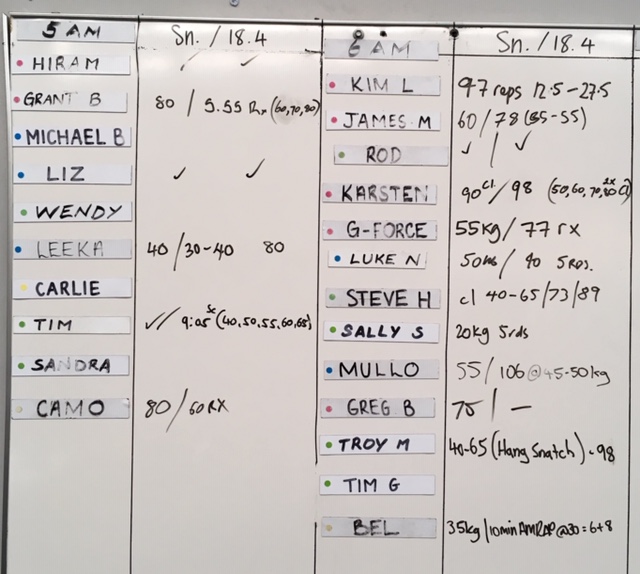 5 AM Sn. / 18.4
HIRAM ✓ ✓
GRANT B 80 / 9.55 Rx (60,70,80)
MICHAEL B
LIZ ✓ ✓
WENDY
LEEKA 40 / 30-40 80
CARLIE
TIM ✓✓ 9:05 Sc (40,50,55,60,65)
SANDRA
CAMO 80 / 60 RX
6 AM Sn. / 18.4
KIM L 97 reps 12.5-27.5
JAMES M 60 / 78 (35-55)
ROD ✓ / ✓
KARSTEN 90 cl / 98 (50,60,70,80 cl)
G-FORCE 55kg / 77 rx
LUKE N 50kg / 90
STEVE H cl 40-65/73/89
SALLY S 20kg 5rds
MULLO 55 / 106 @ 45-50kg
GREG B 75 / -
TROY M 40-65 (Hang Snatch) - 98
TIM G
BEL 35kg / 10min AMRAP @30 = 6+8